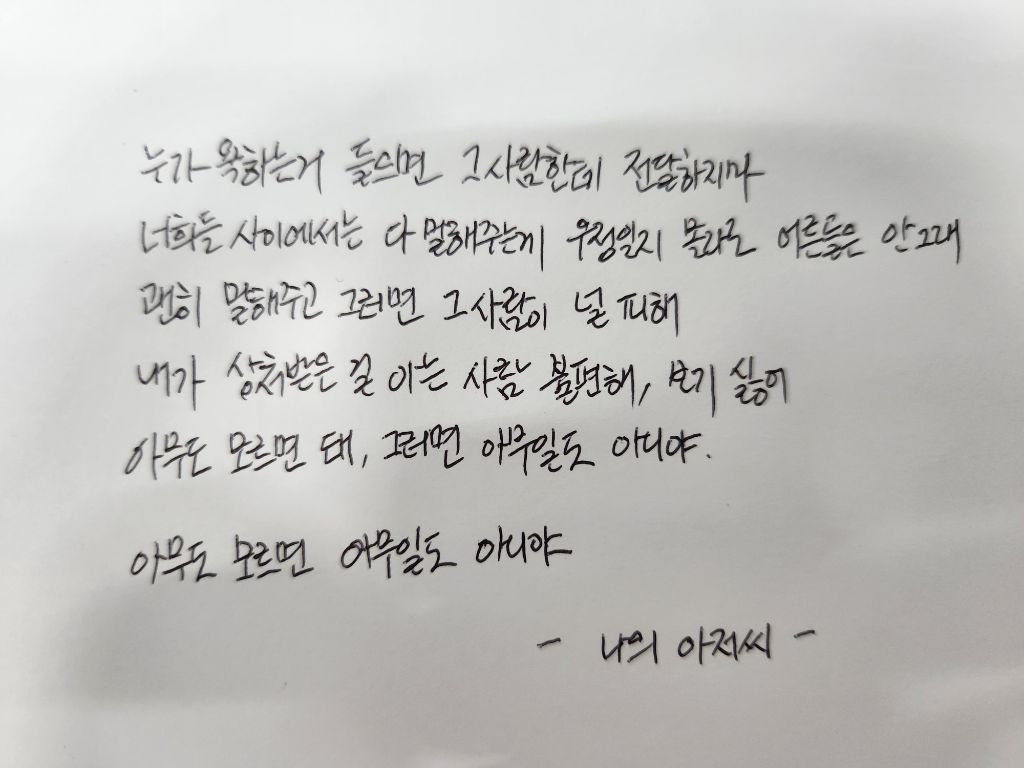 누가 욕하는거 들으면 그사람한테 전달하지마
너희들 사이에서는 다 말해주는게 우정일지 몰라도 어른들은 안그래
괜히 말해주고 그러면 그사람이 널 피해
내가 상처받은 걸 아는 사람 불편해, 보기 싫어
아무도 모르면 돼, 그러면 아무일도 아니야.
아무도 모르면 아무일도 아니야
- 나의 아저씨 -